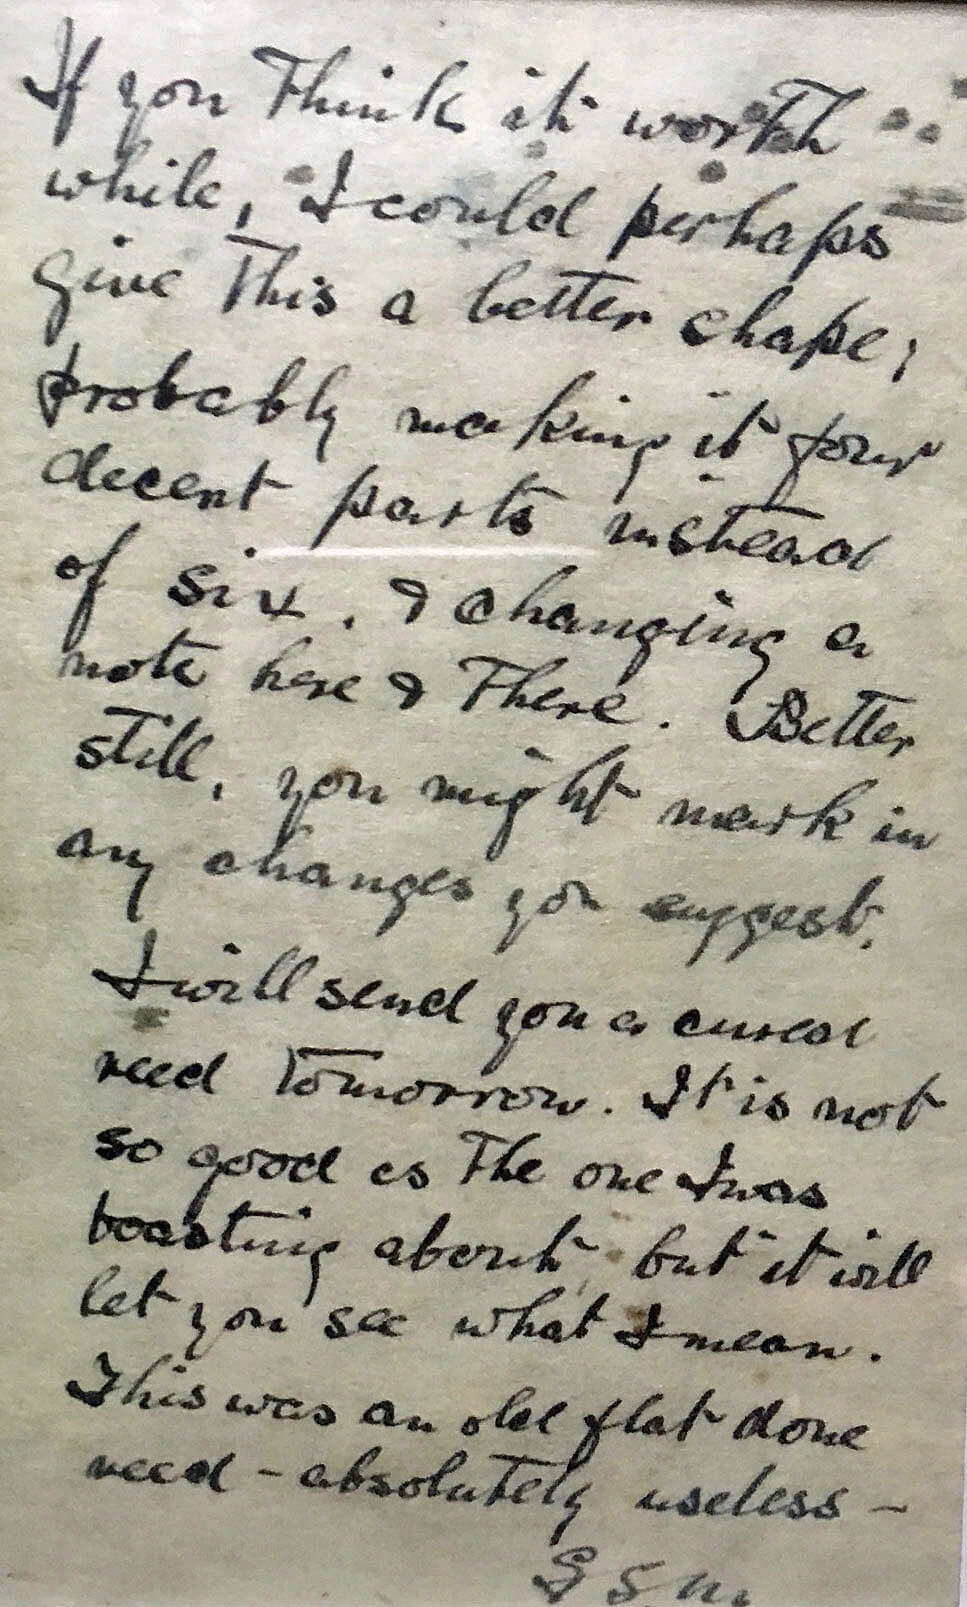 If you think it worth
while, I could perhaps
give this a better shape;
probably making it four
decent parts instead
of six, & changing a
note here & there. Better
still, you might mark in
any changes you suggest.
I will send you a cured
reed tomorrow. It is not
so good as the one I was
boasting about, but it will
let you see what I mean.
This was an old flat done
reed - absolutely useless -